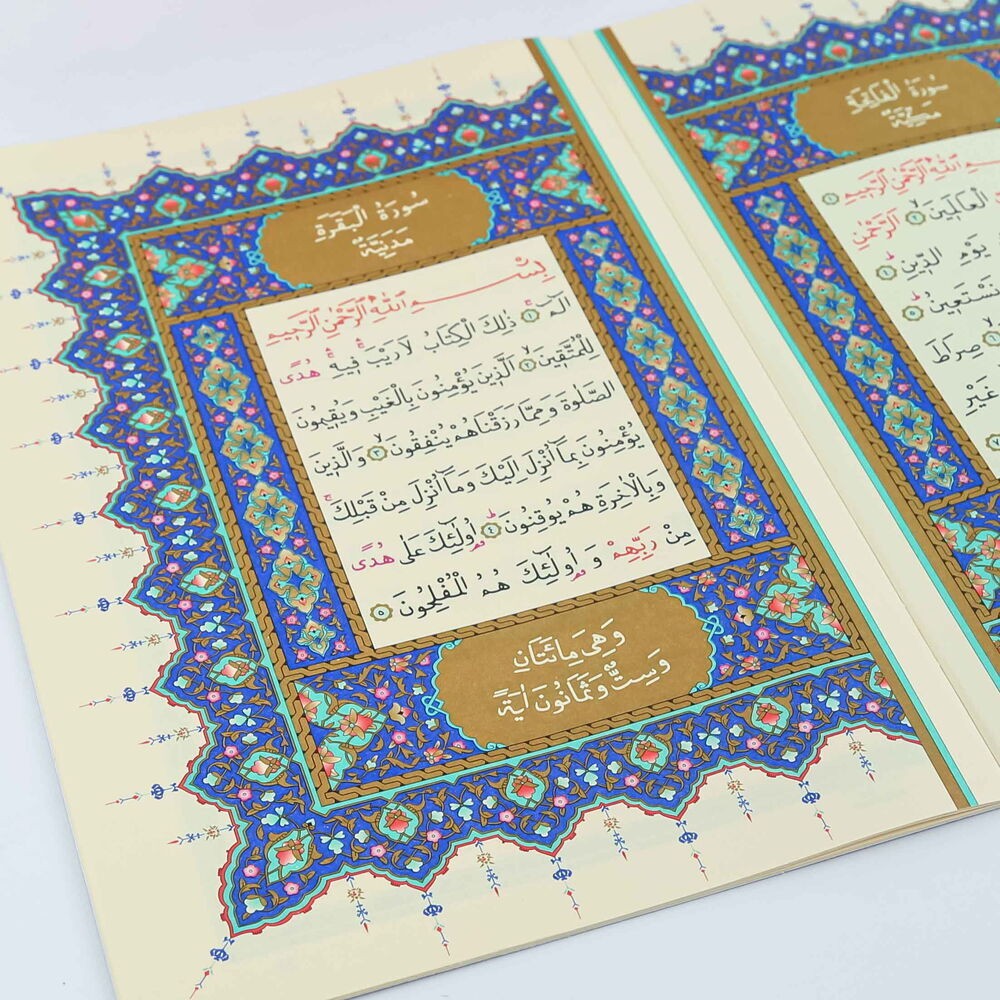 سُورَةُ الْفَاتِحَةِ
مَكِّيَّةٌ
اللّٰهِ الرَّحْمٰنِ الرَّحِيمِ ١
الْعَالَمِينَ ٢ اَلرَّحْمٰنِ
يَوْمِ الدِّينِ ٤
نَسْتَعِينُ ٥
صِرَاطَ
غَيْرِ
٧
سُورَةُ الْبَقَرَةِ
مَدَنِيَّةٌ
بِسْمِ اللّٰهِ الرَّحْمٰنِ الرَّحِيمِ
الٓمٓ ١ ذٰلِكَ الْكِتَابُ لَا رَيْبَ فِيهِ هُدًى
لِلْمُتَّقِينَ ٢ اَلَّذِينَ يُؤْمِنُونَ بِالْغَيْبِ وَيُقِيمُونَ
الصَّلٰوةَ وَمِمَّا رَزَقْنَاهُمْ يُنْفِقُونَ ٣ وَالَّذِينَ
يُؤْمِنُونَ بِمَٓا اُنْزِلَ اِلَيْكَ وَمَٓا اُنْزِلَ مِنْ قَبْلِكَ
وَبِالْاٰخِرَةِ هُمْ يُوقِنُونَ ٤ اُو۬لٰٓئِكَ عَلٰى هُدًى
مِنْ رَبِّهِمْ وَاُو۬لٰٓئِكَ هُمُ الْمُفْلِحُونَ ٥
وَهِىَ مِائَتَانِ
وَسِتٌّ وَثَمَانُونَ اٰيَةً